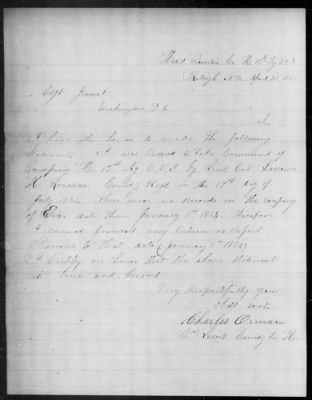 Head Quarters Co. H. 15th Rg
Raleigh N.C. April 30
Adjt General
Washington D.C.
Sir
I have the honor to make the following
Statement I was to take Command of
Company H. 15th Rg by Lieut Col.
H. Comdg Regt in the 19th day of
July there was no Records in the company
of later date than January 1st therefore
I cannot furnish any Return or Report
Previous to that date January 1st
I Certify on honor that the above Statement
is true and Correct
Very Respectfully your
Obdt Servt
Charles Orman
Lieut Comdg Co H.